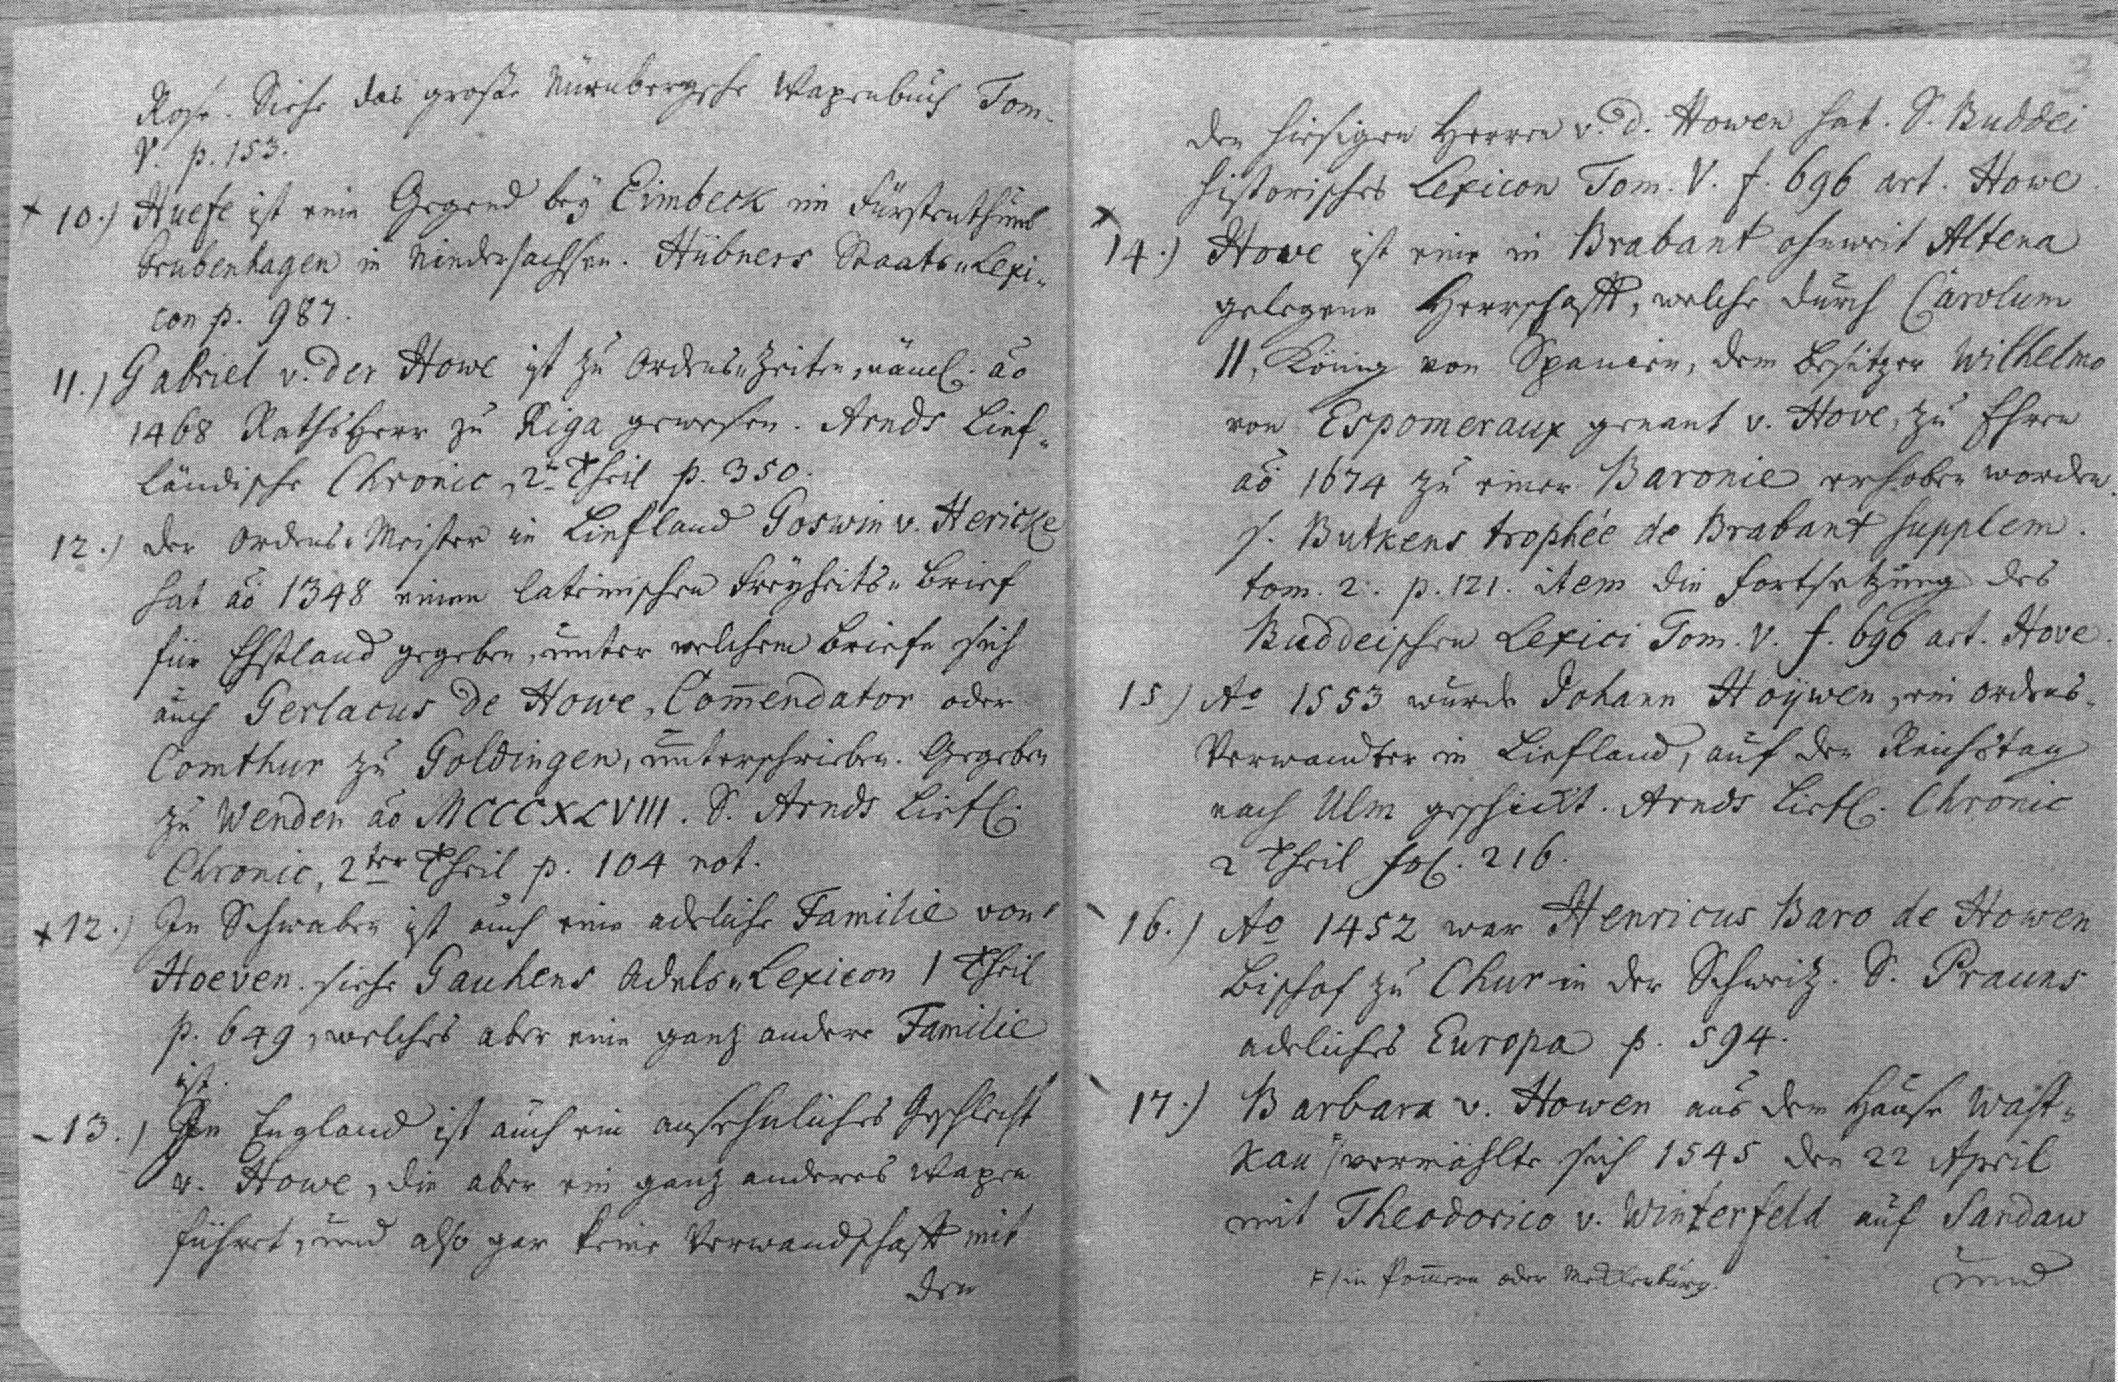 Rose. Siehe das große Nürnbergsche Wapenbuch Tom.
V. p. 153.
+ 10.) Huefe ist eine Gegend beÿ Eimbeck im Fürstenthum
Grubenhagen in Niedersachsen. Hübners Staats„Lexi„
con p. 987.
11.) Gabriel v. der Howe ist zu Ordens„Zeiten, näml. ao
1468 RathsHerr zu Riga gewesen. Arnds Lief„
ländische Chronic, 2r Theil p. 350.
12.) der Ordens„Meister in Liefland Goswin v. Hericke
hat ao 1348 einen lateinischen Freÿheits„Brief
für Ehstland gegeben, unter welchem Briefe sich
auch Gerlacus de Howe, Com̄endator oder
Comthur zu Goldingen, unterschrieben. Gegeben
zu Wenden ao MCCCXLVIII. S. Arnds Liefl.
Chronic, 2ter Theil p. 104 not.
+ 12.) In Schwaben ist auch eine adeliche Familie von
Hoeven. siehe Gauhens Adels„Lexicon 1 Theil
p. 649, welches aber eine ganz andere Familie
ist.
- 13.) In England ist auch ein ansehnliches Geschlecht
v. Howe, die aber ein ganz anderes Wapen
führet, und also gar keine Verwandschafft mit
den
den hiesigen Herren v. d. Howen hat. S. Buddei
historisches Lexicon Tom. V. f. 696 art. Howe.
+ 14.) Hove ist eine in Brabant ohnweit Altena
gelegene Herrschafft, welche durch Carolum
II, König von Spanien, dem Besitzer Wilhelmo
von Espomeraux genant v. Hove, zu Ehren
ao 1674 zu einer Baronie erhoben worden.
s. Butkens trophée de Brabant supplem.
tom. 2. p. 121. item die Fortsetzung des
Buddeischen Lexici Tom. V. f. 696 art. Hove.
15) Ao 1553 wurde Johann Hoÿwen, ein Ordens„
Verwandter in Liefland, auf den Reichstag
nach Ulm geschickt. Arnds Liefl. Chronic
2 Theil fol. 216.
16.) Ao 1452 war Henricus Baro de Howen
Bischof zu Chur in der Schweitz. S. Prauns
adeliches Europa p. 594.
17.) Barbara v. Howen aus dem Hause Wast„
kau F) vermählte sich 1545 den 22 April
mit Theodorico v. Winterfeld auf Sandau
F) in Pom̄ern oder Mecklenburg.
und